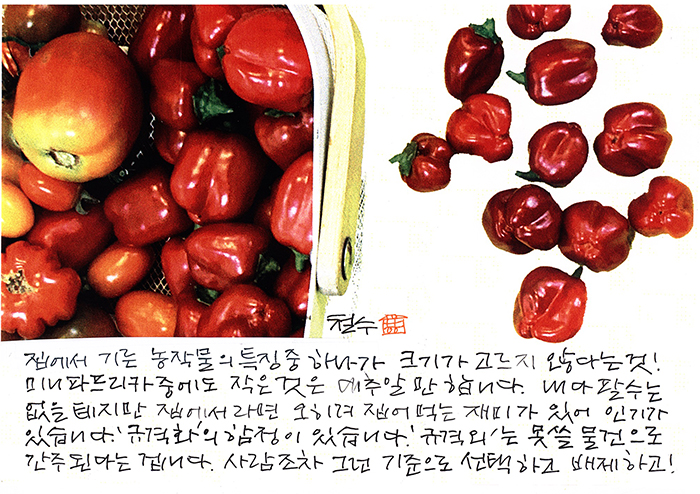 철수
집에서 기른 농작물의 특징중 하나가 크기가 고르지 않다는것!
미니파프리카중에도 작은것은 메추알만 합니다. 내다 팔수는
없을 테지만 집에서라면 오히려 집어 먹는 재미가 있어 인기가
있습니다. '규격화'의 함정이 있습니다. '규격외'는 못쓸 물건으로
간주된다는 겁니다. 사람조차 그런 기준으로 선택하고 배제하고!